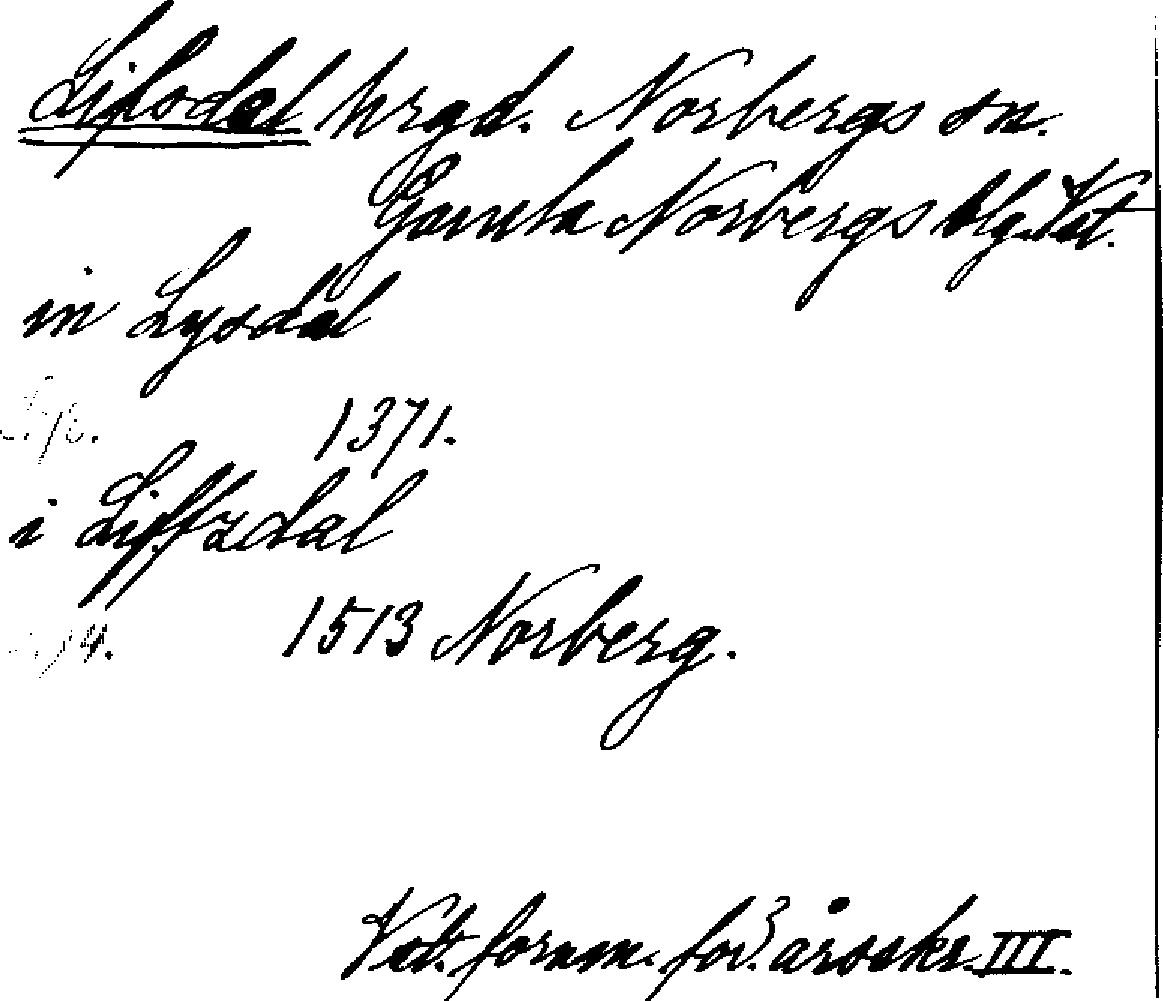 Lifsdal hrgd. Norbergs sn.
Gamla Norbergs blg. Vst.
in Lysdal
1371.
i Liffzdal
1513 Norberg.
Vest. fornm. för. årsskr. III.